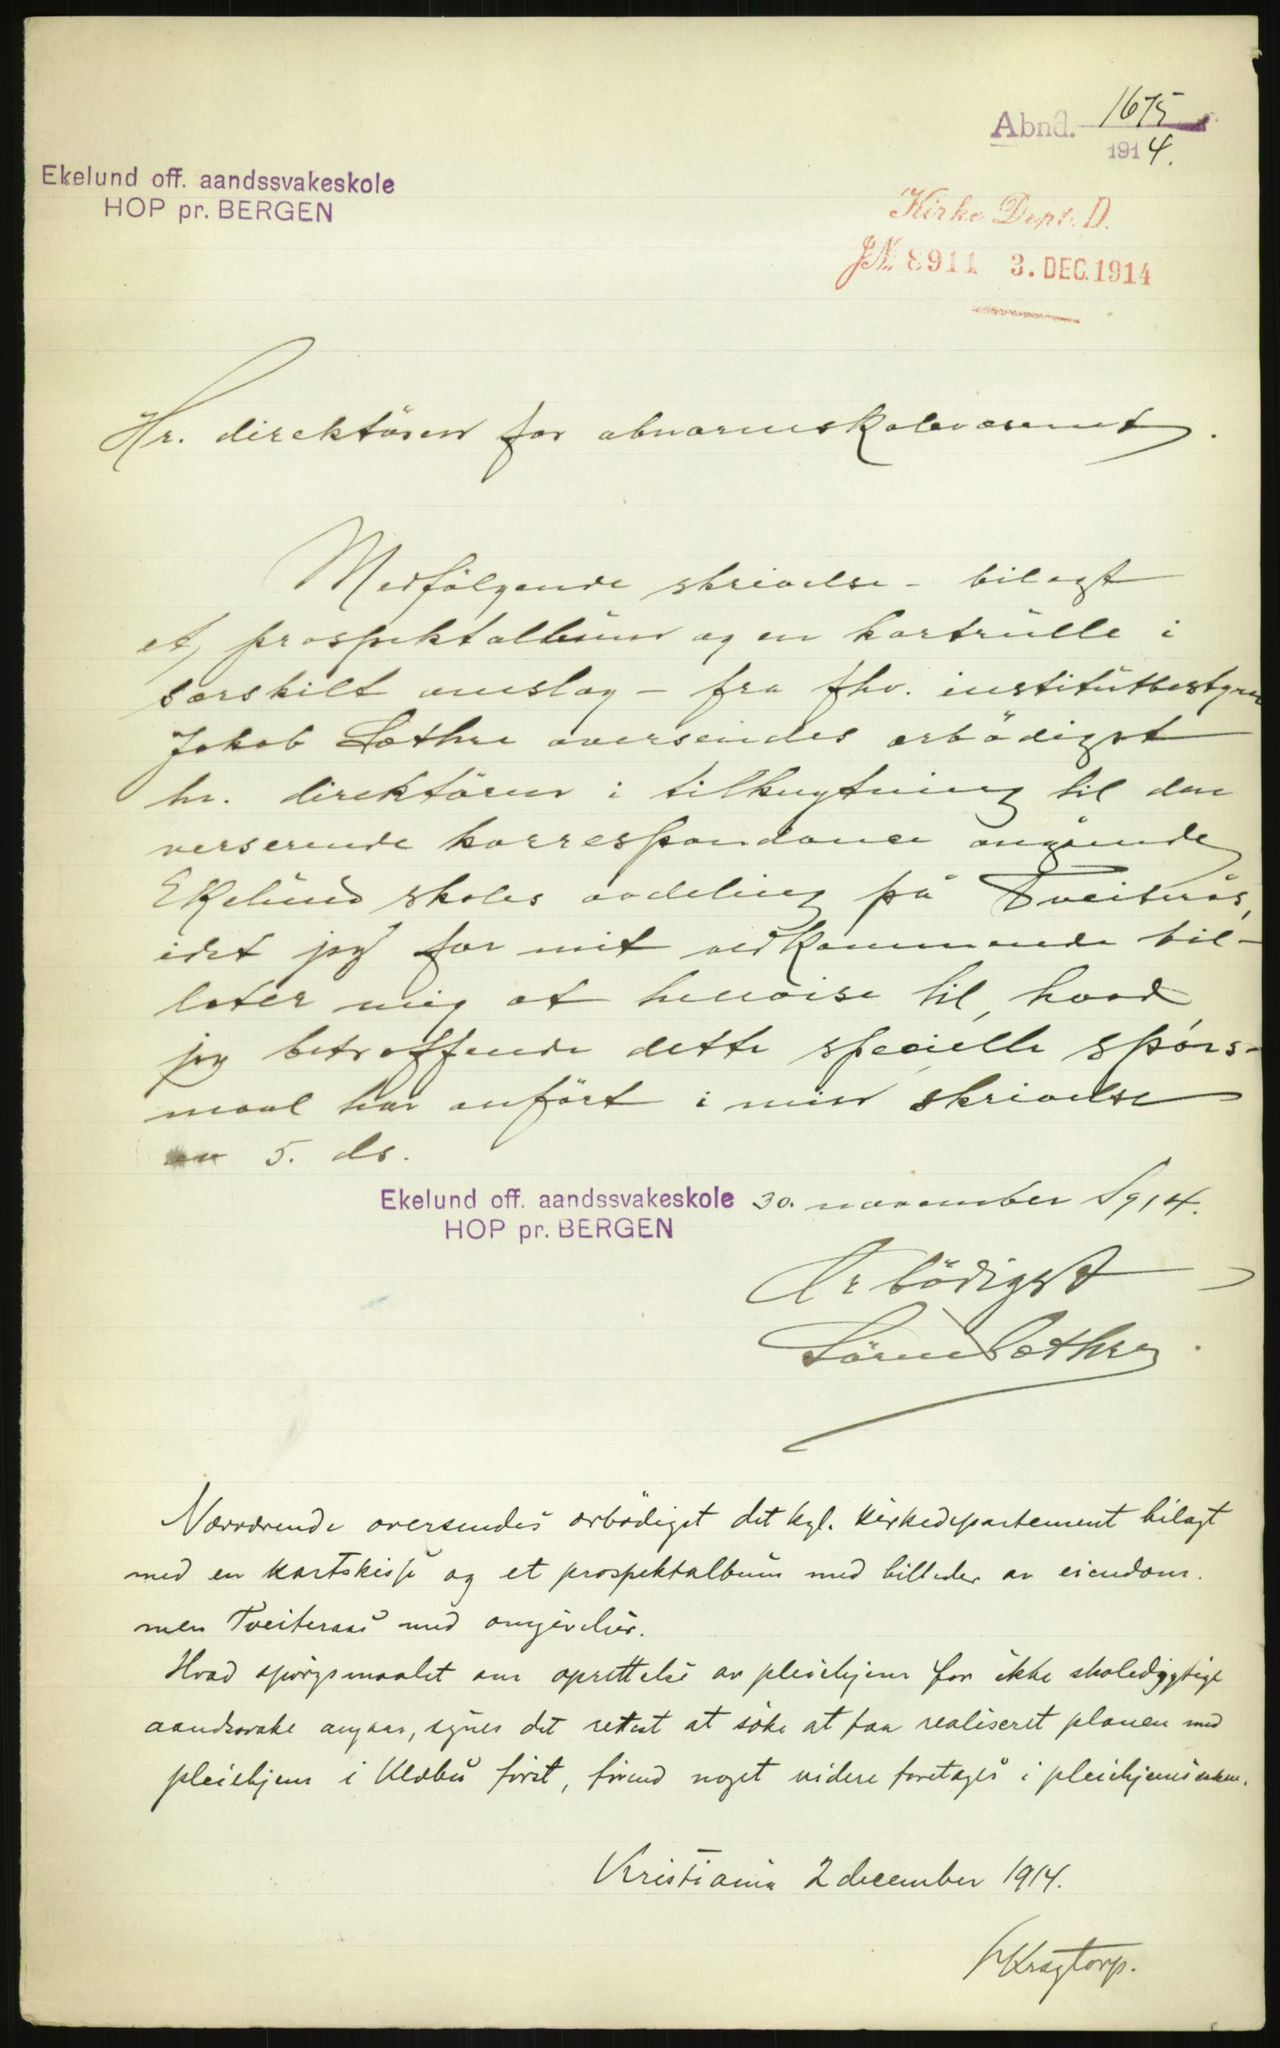 Abnd. 1675
1914.
Ekelund off. aandssvakeskole
HOP pr. BERGEN
Kirke Dept. D.
JN. 8911 3. DEC. 1914
Hr. direktören for abnormskolevæsenet.
Medfölgende skrivelse – bilagt
et prospektalbum og en kartrulle i
særskilt omslag – fra fhv. institutbestyrer
Jakob Sæthre oversendes ærbödigst
hr. direktören i tilknytning til den
verserende korrespondance angående
Ekelund skoles avdeling på Tveiterås,
idet jeg for mit vedkommende til-
later mig at henvise til, hvad
jeg betræffende dette specielle spörs-
maal har anfört i min skrivelse
av 5. ds.
Ekelund off. aandssvakeskole 30. november 1914.
HOP pr. BERGEN
Ærbödigst
Sören Sæthre
Nærværende oversendes ærbödigst det kgl. kirkedepartement bilagt
med en kartskisse og et prospektalbum med billeder av eiendom-
men Tveiteraas med omgivelser.
Hvad spörgsmaalet om oprettelse av pleiehjem for ikke skoledygtige
aandssvake angaar, synes det rettest at söke at faa realiseret planen med
pleiehjem i Klæbu först, förend noget videre foretages i pleiehjemssaken.
Kristiania 2 december 1914.
Kragtorp.